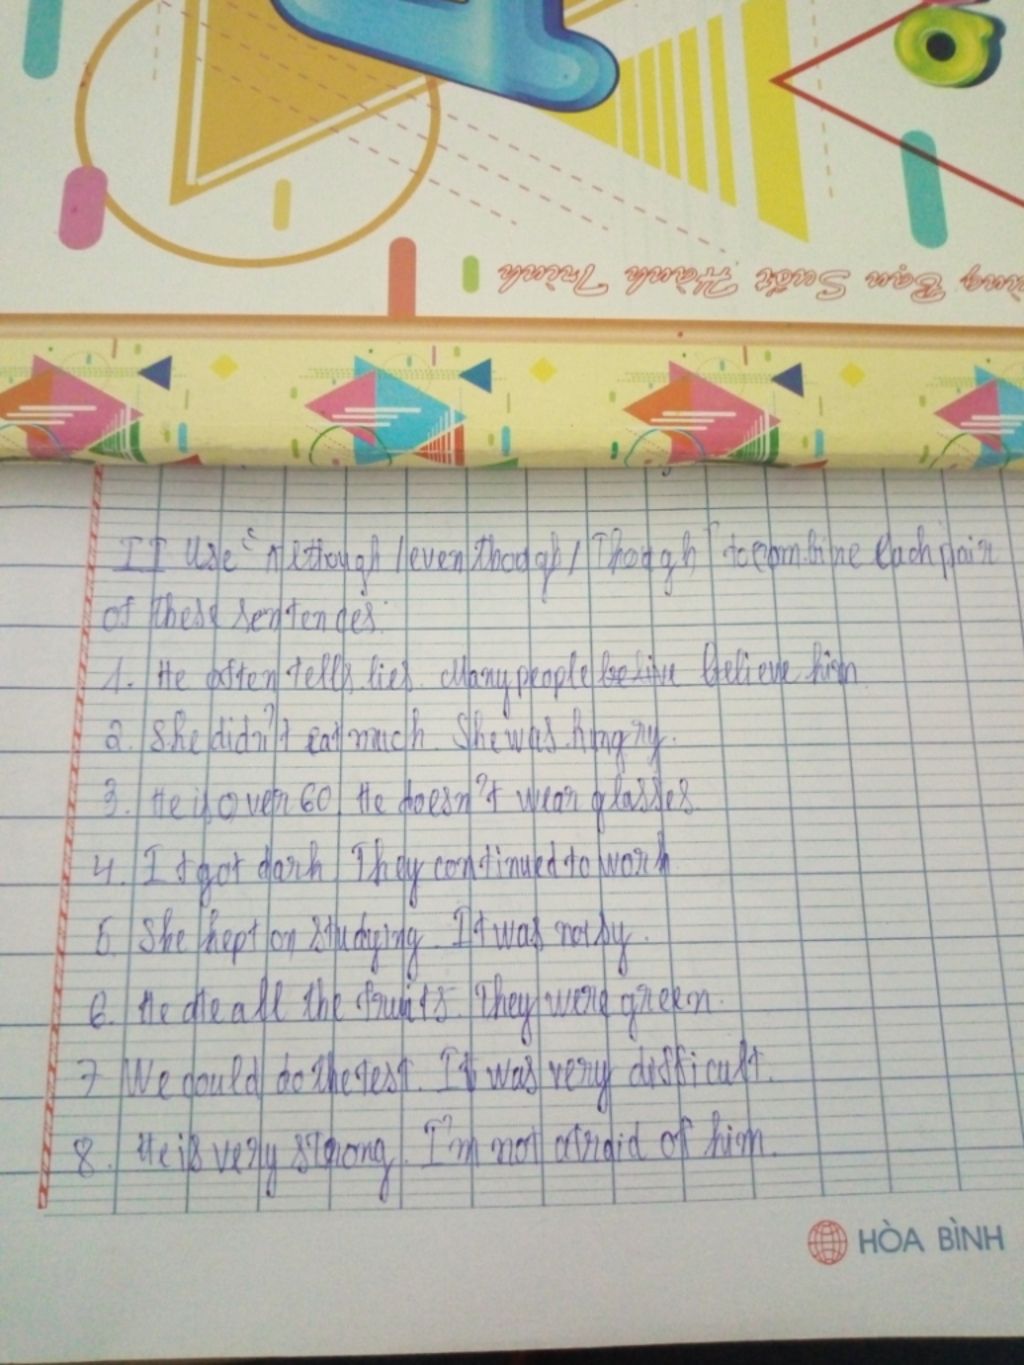 ùng Bạn Suốt Hành Trình
II Use "Although / even thoogh / Thoogh" to combine each pair
of these sentences.
1. He often tells lies. Many people belive believe him
2. She didn't eat much. She was hungry.
3. He is over 60. He doesn't wear glasses
4. It got dark. They continued to work
5. She kept on studying. It was noisy.
6. He ate all the fruits. They were green.
7 We could do the test. It was very difficult.
8. He is very strong. I'm not afraid of him.
HÒA BÌNH